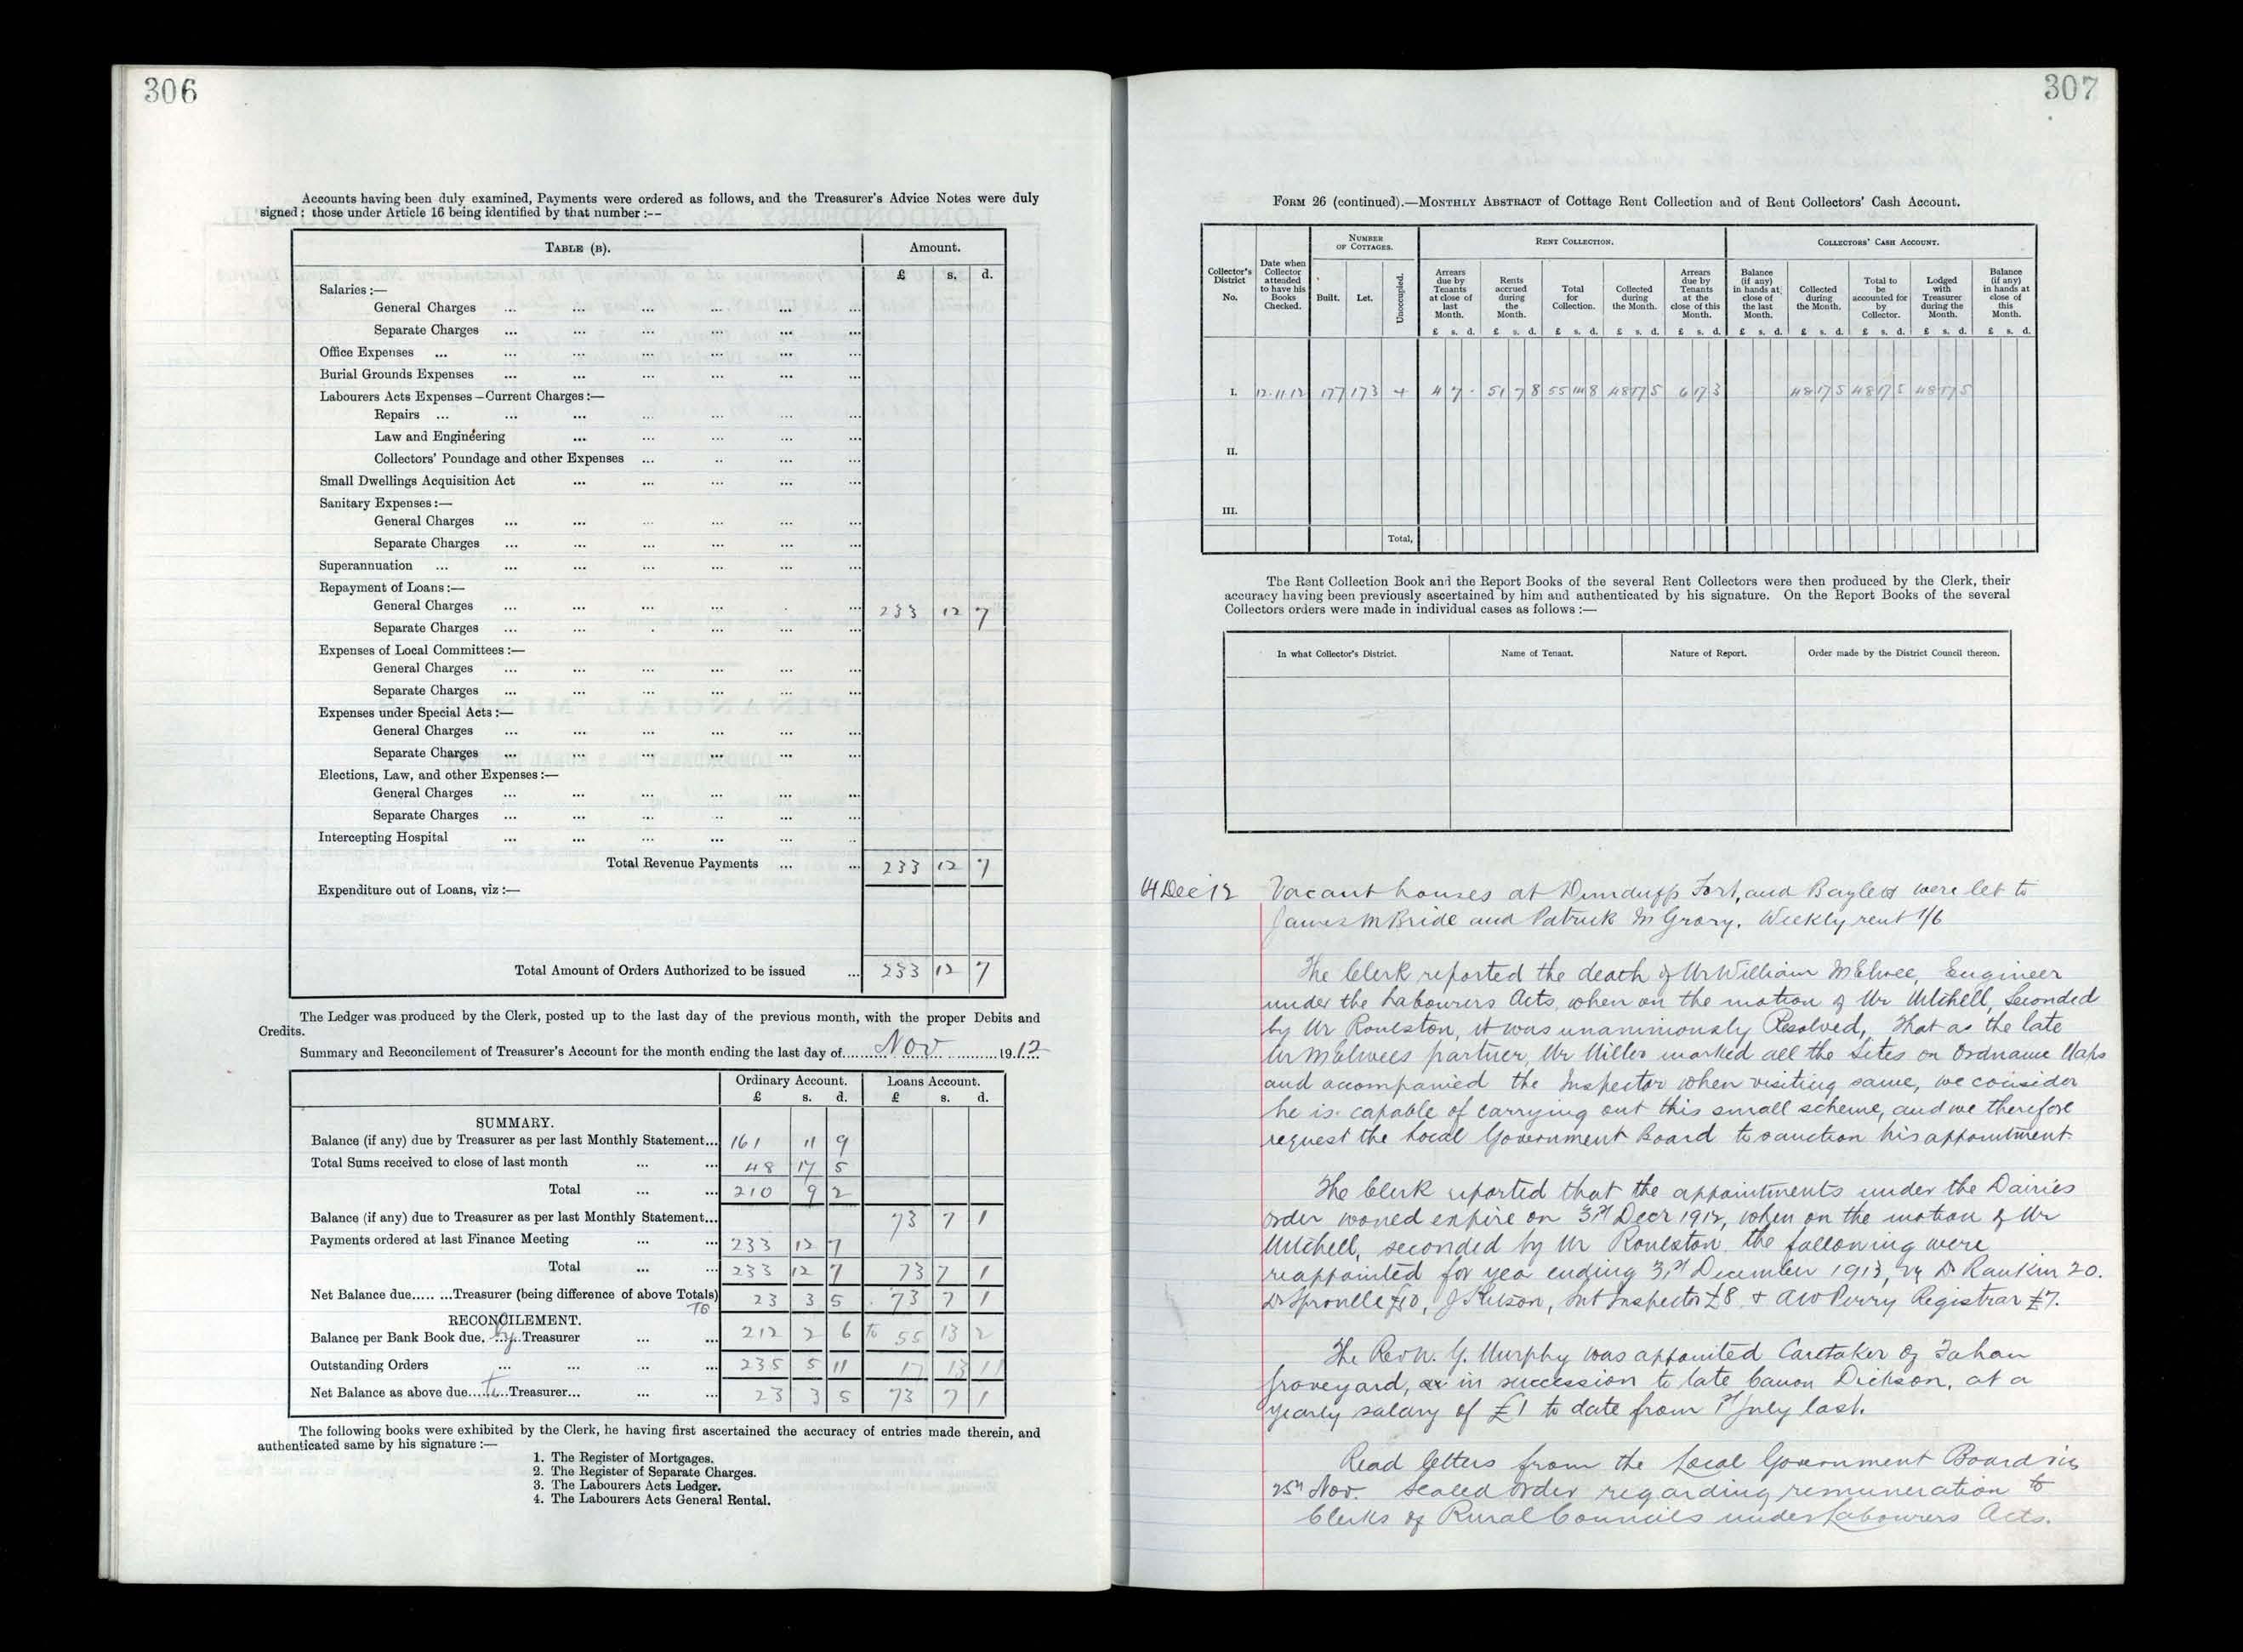 306
Accounts having been duly examined, Payments were ordered as follows, and the Treasurer's Advice Notes were duly
signed: those under Article 16 being identified by that number :--
TABLE (B). Amount.
£ s. d.
Salaries :—
General Charges ... ... ... ... ... ...
Separate Charges ... ... ... ... ... ...
Office Expenses ... ... ... ... ... ...
Burial Grounds Expenses ... ... ... ... ... ...
Labourers Acts Expenses —Current Charges :—
Repairs ... ... ... ... ... ...
Law and Engineering ... ... ... ... ...
Collectors' Poundage and other Expenses ... .. ... ...
Small Dwellings Acquisition Act ... ... ... ... ...
Sanitary Expenses :—
General Charges ... ... ... ... ... ...
Separate Charges ... ... ... ... ... ...
Superannuation ... ... ... ... ... ... ...
Repayment of Loans :—
General Charges ... ... ... ... . ... 233 12 7
Separate Charges ... ... . ... ... ...
Expenses of Local Committees :—
General Charges ... ... ... ... ... ...
Separate Charges ... ... ... ... ... ...
Expenses under Special Acts :—
General Charges ... ... ... ... ... ...
Separate Charges ... ... ... ... ... ...
Elections, Law, and other Expenses :—
General Charges ... ... ... ... ... ...
Separate Charges ... ... ... ... ... ...
Intercepting Hospital ... ... ... ... ... ..
Total Revenue Payments ... ... 233 12 7
Expenditure out of Loans, viz :—
Total Amount of Orders Authorized to be issued ... 233 12 7
The Ledger was produced by the Clerk, posted up to the last day of the previous month, with the proper Debits and
Credits.
Summary and Reconcilement of Treasurer's Account for the month ending the last day of Nov 1912
Ordinary Account. Loans Account.
£ s. d. £ s. d.
SUMMARY.
Balance (if any) due by Treasurer as per last Monthly Statement... 161 11 9
Total Sums received to close of last month ... ... 48 17 5
Total ... ... 210 9 2
Balance (if any) due to Treasurer as per last Monthly Statement... 73 7 1
Payments ordered at last Finance Meeting ... ... 233 12 7
Total ... ... 233 12 7 73 7 1
Net Balance due..... ...Treasurer (being difference of above Totals) 23 3 5 73 7 1
To
RECONCILEMENT.
Balance per Bank Book due. by Treasurer ... ... 212 2 6 to 55 13 2
Outstanding Orders ... ... ... ... 235 5 11 17 13 11
Net Balance as above due to Treasurer... ... ... 23 3 5 73 7 1
The following books were exhibited by the Clerk, he having first ascertained the accuracy of entries made therein, and
authenticated same by his signature :—
1. The Register of Mortgages.
2. The Register of Separate Charges.
3. The Labourers Acts Ledger.
4. The Labourers Acts General Rental.
307
FORM 26 (continued).—MONTHLY ABSTRACT of Cottage Rent Collection and of Rent Collectors' Cash Account.
Collector's District No.
Date when Collector attended to have his Books Checked.
NUMBER OF COTTAGES.
Built. Let. Unoccupied.
RENT COLLECTION.
Arrears due by Tenants at close of last Month.
Rents accrued during the Month.
Total for Collection.
Collected during the Month.
Arrears due by Tenants at the close of this Month.
COLLECTORS' CASH ACCOUNT.
Balance (if any) in hands at close of the last Month.
Collected during the Month.
Total to be accounted for by Collector.
Lodged with Treasurer during the Month.
Balance (if any) in hands at close of this Month.
£ s. d. £ s. d. £ s. d. £ s. d. £ s. d. £ s. d. £ s. d. £ s. d. £ s. d. £ s. d.
I. 12.11.12 177 173 4 4 7 - 51 7 8 55 14 8 48 17 5 6 17 3 48 17 5 48 17 5 48 17 5
II.
III.
Total,
The Rent Collection Book and the Report Books of the several Rent Collectors were then produced by the Clerk, their
accuracy having been previously ascertained by him and authenticated by his signature. On the Report Books of the several
Collectors orders were made in individual cases as follows :—
In what Collector's District. Name of Tenant. Nature of Report. Order made by the District Council thereon.
14 Dec 12 Vacant houses at Dunduff's Fort, and Baylet were let to
James McBride and Patrick McGrory. Weekly rent 1/6
The Clerk reported the death of Mr William McElwee, Engineer
under the Labourers Acts, when on the motion of Mr Mitchell, Seconded
by Mr Roulston, it was unanimously Resolved, That as the late
Mr McElwees partner, Mr Miller marked all the Sites on Ordnance Maps
and accompanied the Inspector when visiting same, we consider
he is capable of carrying out this small scheme, and we therefore
request the Local Government Board to sanction his appointment.
The Clerk reported that the appointments under the Dairies
Order would expire on 31st Decr 1912, when on the motion of Mr
Mitchell, seconded by Mr Roulston the following were
reappointed for year ending 31st December 1913, viz Dr Rankin 20.
Dr Sproulle £10, J Kilson, Int Inspector £8 & A W Perry Registrar £7.
The Revd. G. Murphy was appointed Caretaker of Fahan
graveyard, in succession to late Canon Dickson, at a
yearly salary of £1 to date from 1st July last.
Read letters from the Local Government Board viz
25th Nov. Sealed Order regarding remuneration to
Clerks of Rural Councils under Labourers Acts.